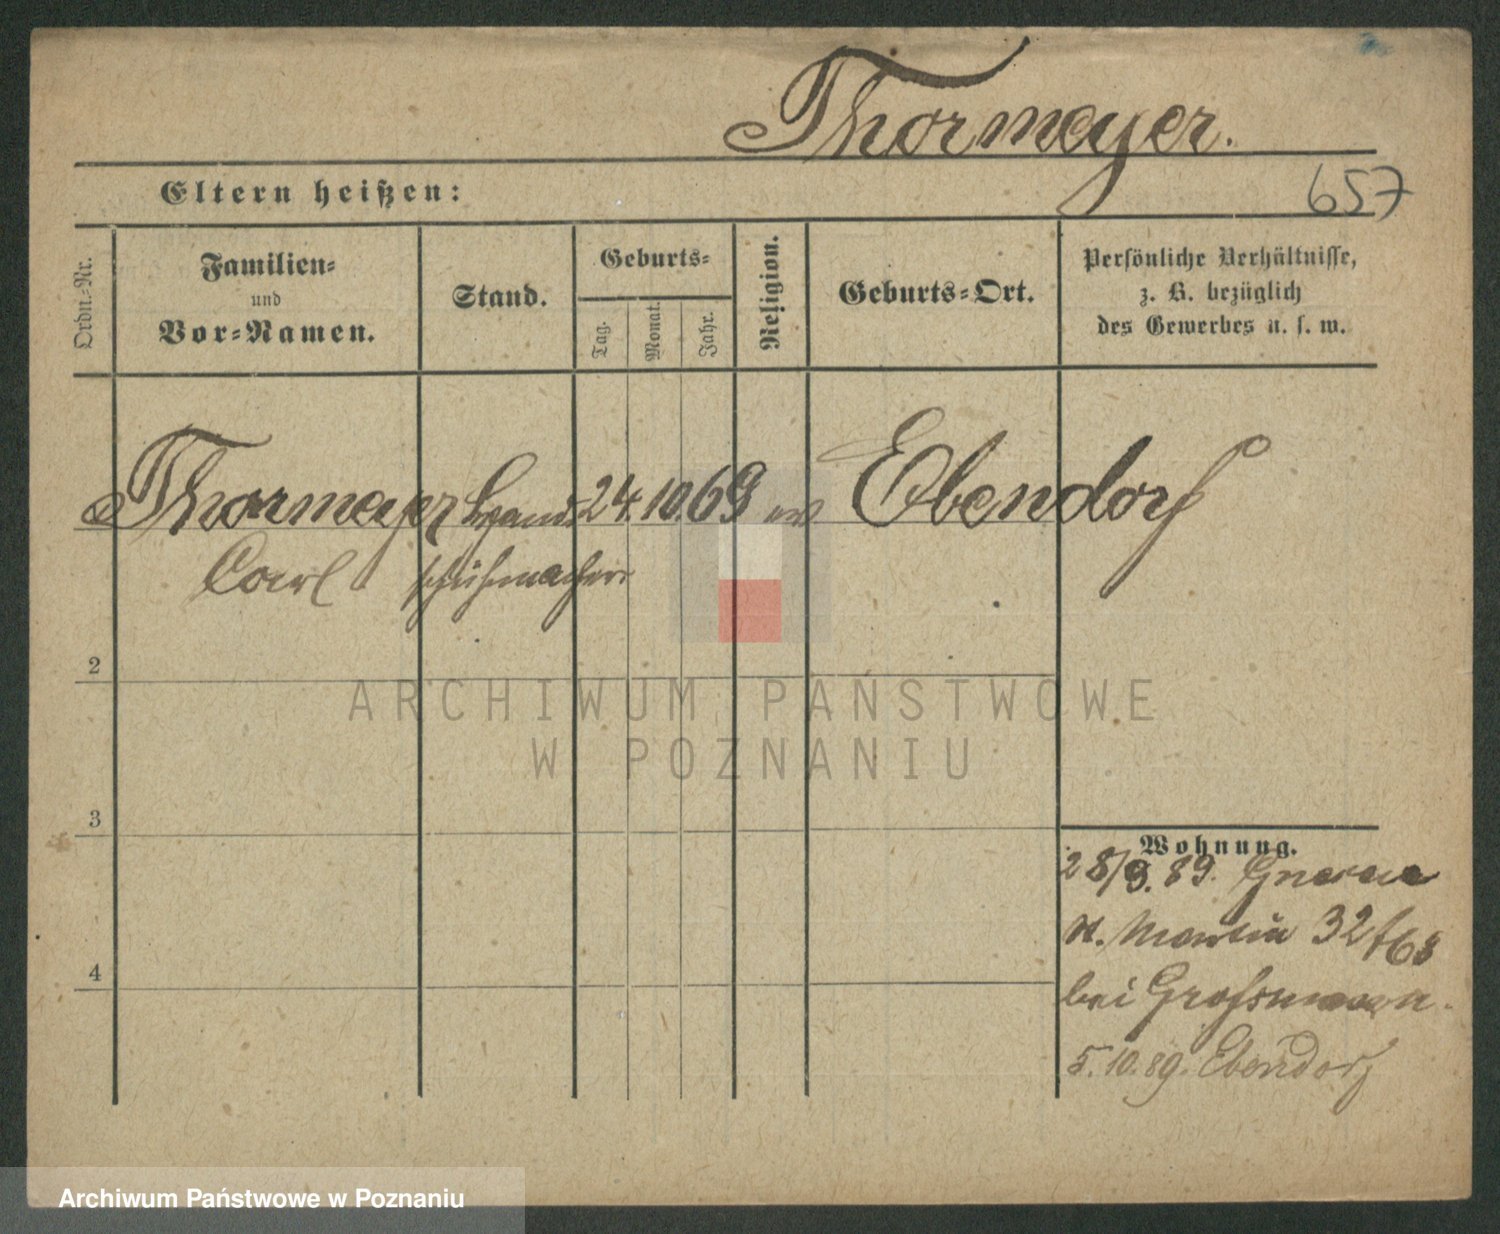 Thormeyer.
657
Eltern heißen:
Ordn.-Nr.
Familien-
und
Vor-Namen.
Stand.
Geburts-
Tag.
Monat.
Jahr.
Religion.
Geburts-Ort.
Persönliche Verhältnisse,
z. B. bezüglich
des Gewerbes u. s. w.
Thormeyer 24. 10. 69 ev Ebendorf
Carl schuhmacher
2
3
4
Wohnung.
28/9. 89. Gnesen
St. Martin 32
bei Grossmann.
5. 10. 89. Ebendorf
ARCHIWUM PAŃSTWOWE
W POZNANIU
Archiwum Państwowe w Poznaniu